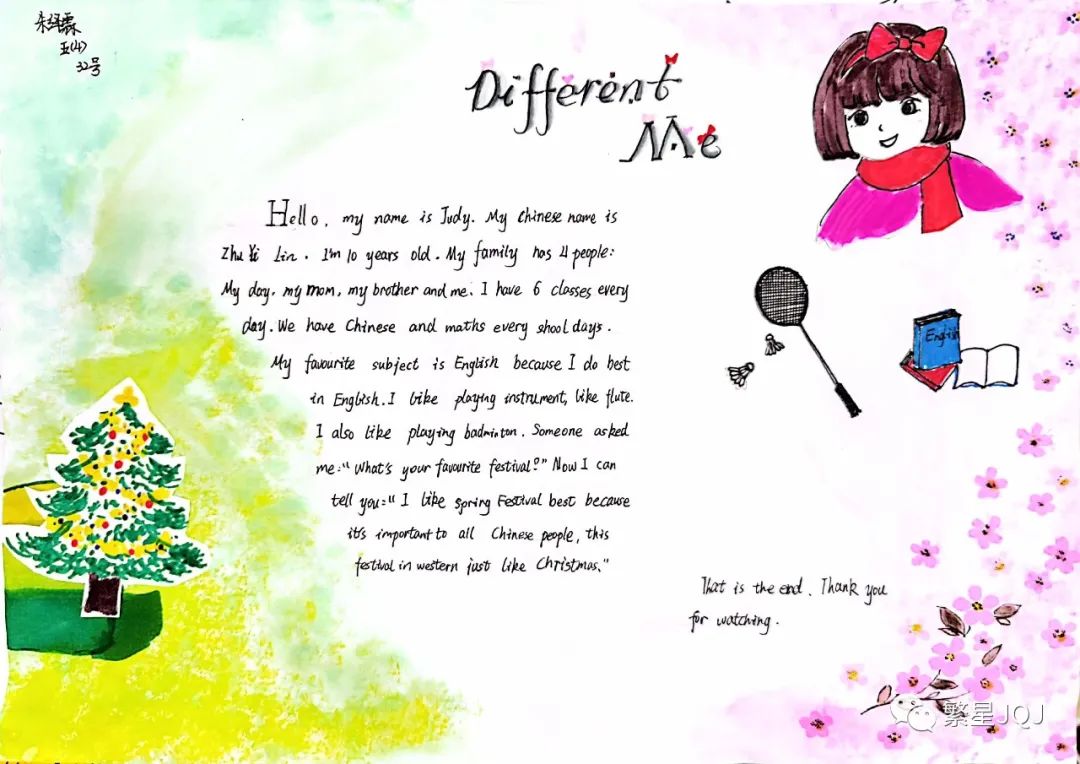 朱绎霖
五(4)
32号
Different
Me
Hello, my name is Judy. My chinese name is
Zhu Yi Lin. I'm 10 years old. My family has 4 people:
My day, my mom, my brother and me. I have 6 classes every
day. We have Chinese and maths every shool days.
My favourite subject is English because I do best
in English. I like playing instrument, like flute.
I also like playing badminton. Someone asked
me:"What's your favourite festival?" Now I can
tell you:"I like Spring Festival best because
it's important to all Chinese people, this
festival in western just like Christmas."
English
That is the end. Thank you
for watching.
繁星JQJ